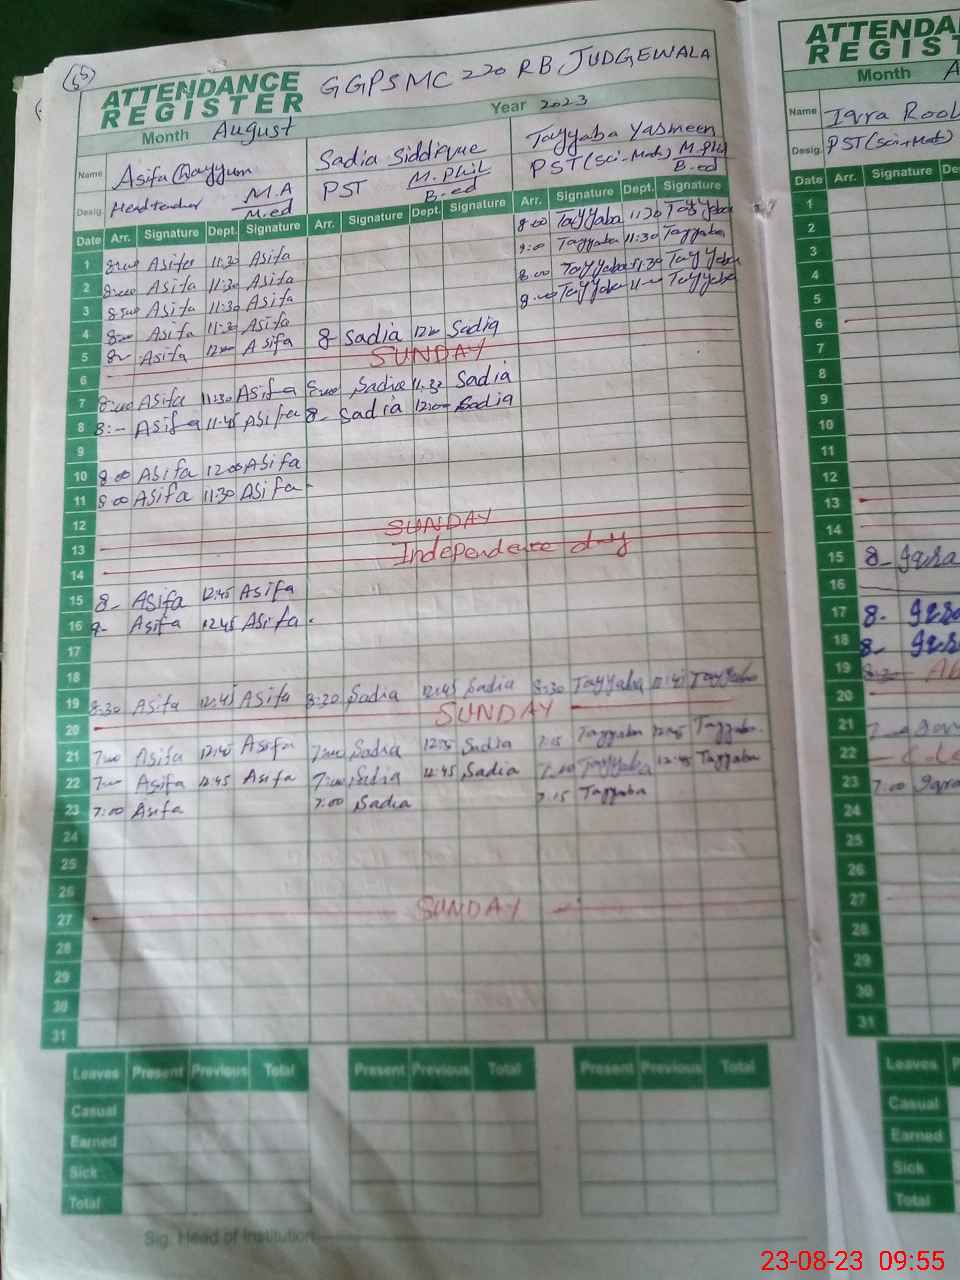 65
ATTENDANCE REGISTER GGPSMC 220 RB JUDGEWALA
Month August Year 2023
Name Asifa Qayyum Sadia Siddique Tayyaba Yasmeen
Desig. Headteacher M.A M.ed PST M.Phil B.ed PST (Sci-Math) M.Phil B.ed
Date Arr. Signature Dept. Signature Arr. Signature Dept. Signature Arr. Signature Dept. Signature
1 8:00 Asifa 11:30 Asifa 8:00 Tayyaba 11:30 Tayyaba
2 8:00 Asifa 11:30 Asifa 8:00 Tayyaba 11:30 Tayyaba
3 Asifa 11:30 Asifa 8:00 Tayyaba 11:30 Tayyaba
4 Asifa 11:30 Asifa 8:00 Tayyaba Tayyaba
5 8- Asifa 12:00 Asifa 8- Sadia 12:00 Sadia
6 SUNDAY
7 8:00 Asifa 11:30 Asifa 8:00 Sadia 11:30 Sadia
8 8:- Asifa 11:45 Asifa 8- Sadia 12:00 Sadia
9
10 8:00 Asifa 12:00 Asifa
11 8:00 Asifa 11:30 Asifa
12
13 SUNDAY
14 Independence day
15 8- Asifa 12:45 Asifa
16 8- Asifa 12:45 Asifa
17
18
19 8:30 Asifa 12:45 Asifa 8:30 Sadia 12:45 Sadia 8:30 Tayyaba Tayyaba
20 SUNDAY
21 7:00 Asifa 12:45 Asifa 7:00 Sadia Sadia 7:15 Tayyaba 12:45 Tayyaba
22 7:00 Asifa 12:45 Asifa 7:00 Sadia 12:45 Sadia Tayyaba 12:45 Tayyaba
23 7:00 Asifa 7:00 Sadia 7:15 Tayyaba
24
25
26
27 SUNDAY
28
29
30
31
Leaves Present Previous Total Present Previous Total Present Previous Total
Casual
Earned
Sick
Total
Sig. Head of Institution
ATTENDA
REGIST
Month A
Name Iqra
Desig. PST (Sci-Math)
Date Arr. Signature De
1
2
3
4
5
6
7
8
9
10
11
12
13
14
15 8- Iqra
16
17 8- Iqra
18 8- Iqra
19 8:30 Ab
20
21
22
23 7:00 Iqra
24
25
26
27
28
29
30
31
Leaves P
Casual
Earned
Sick
Total
23-08-23 09:55